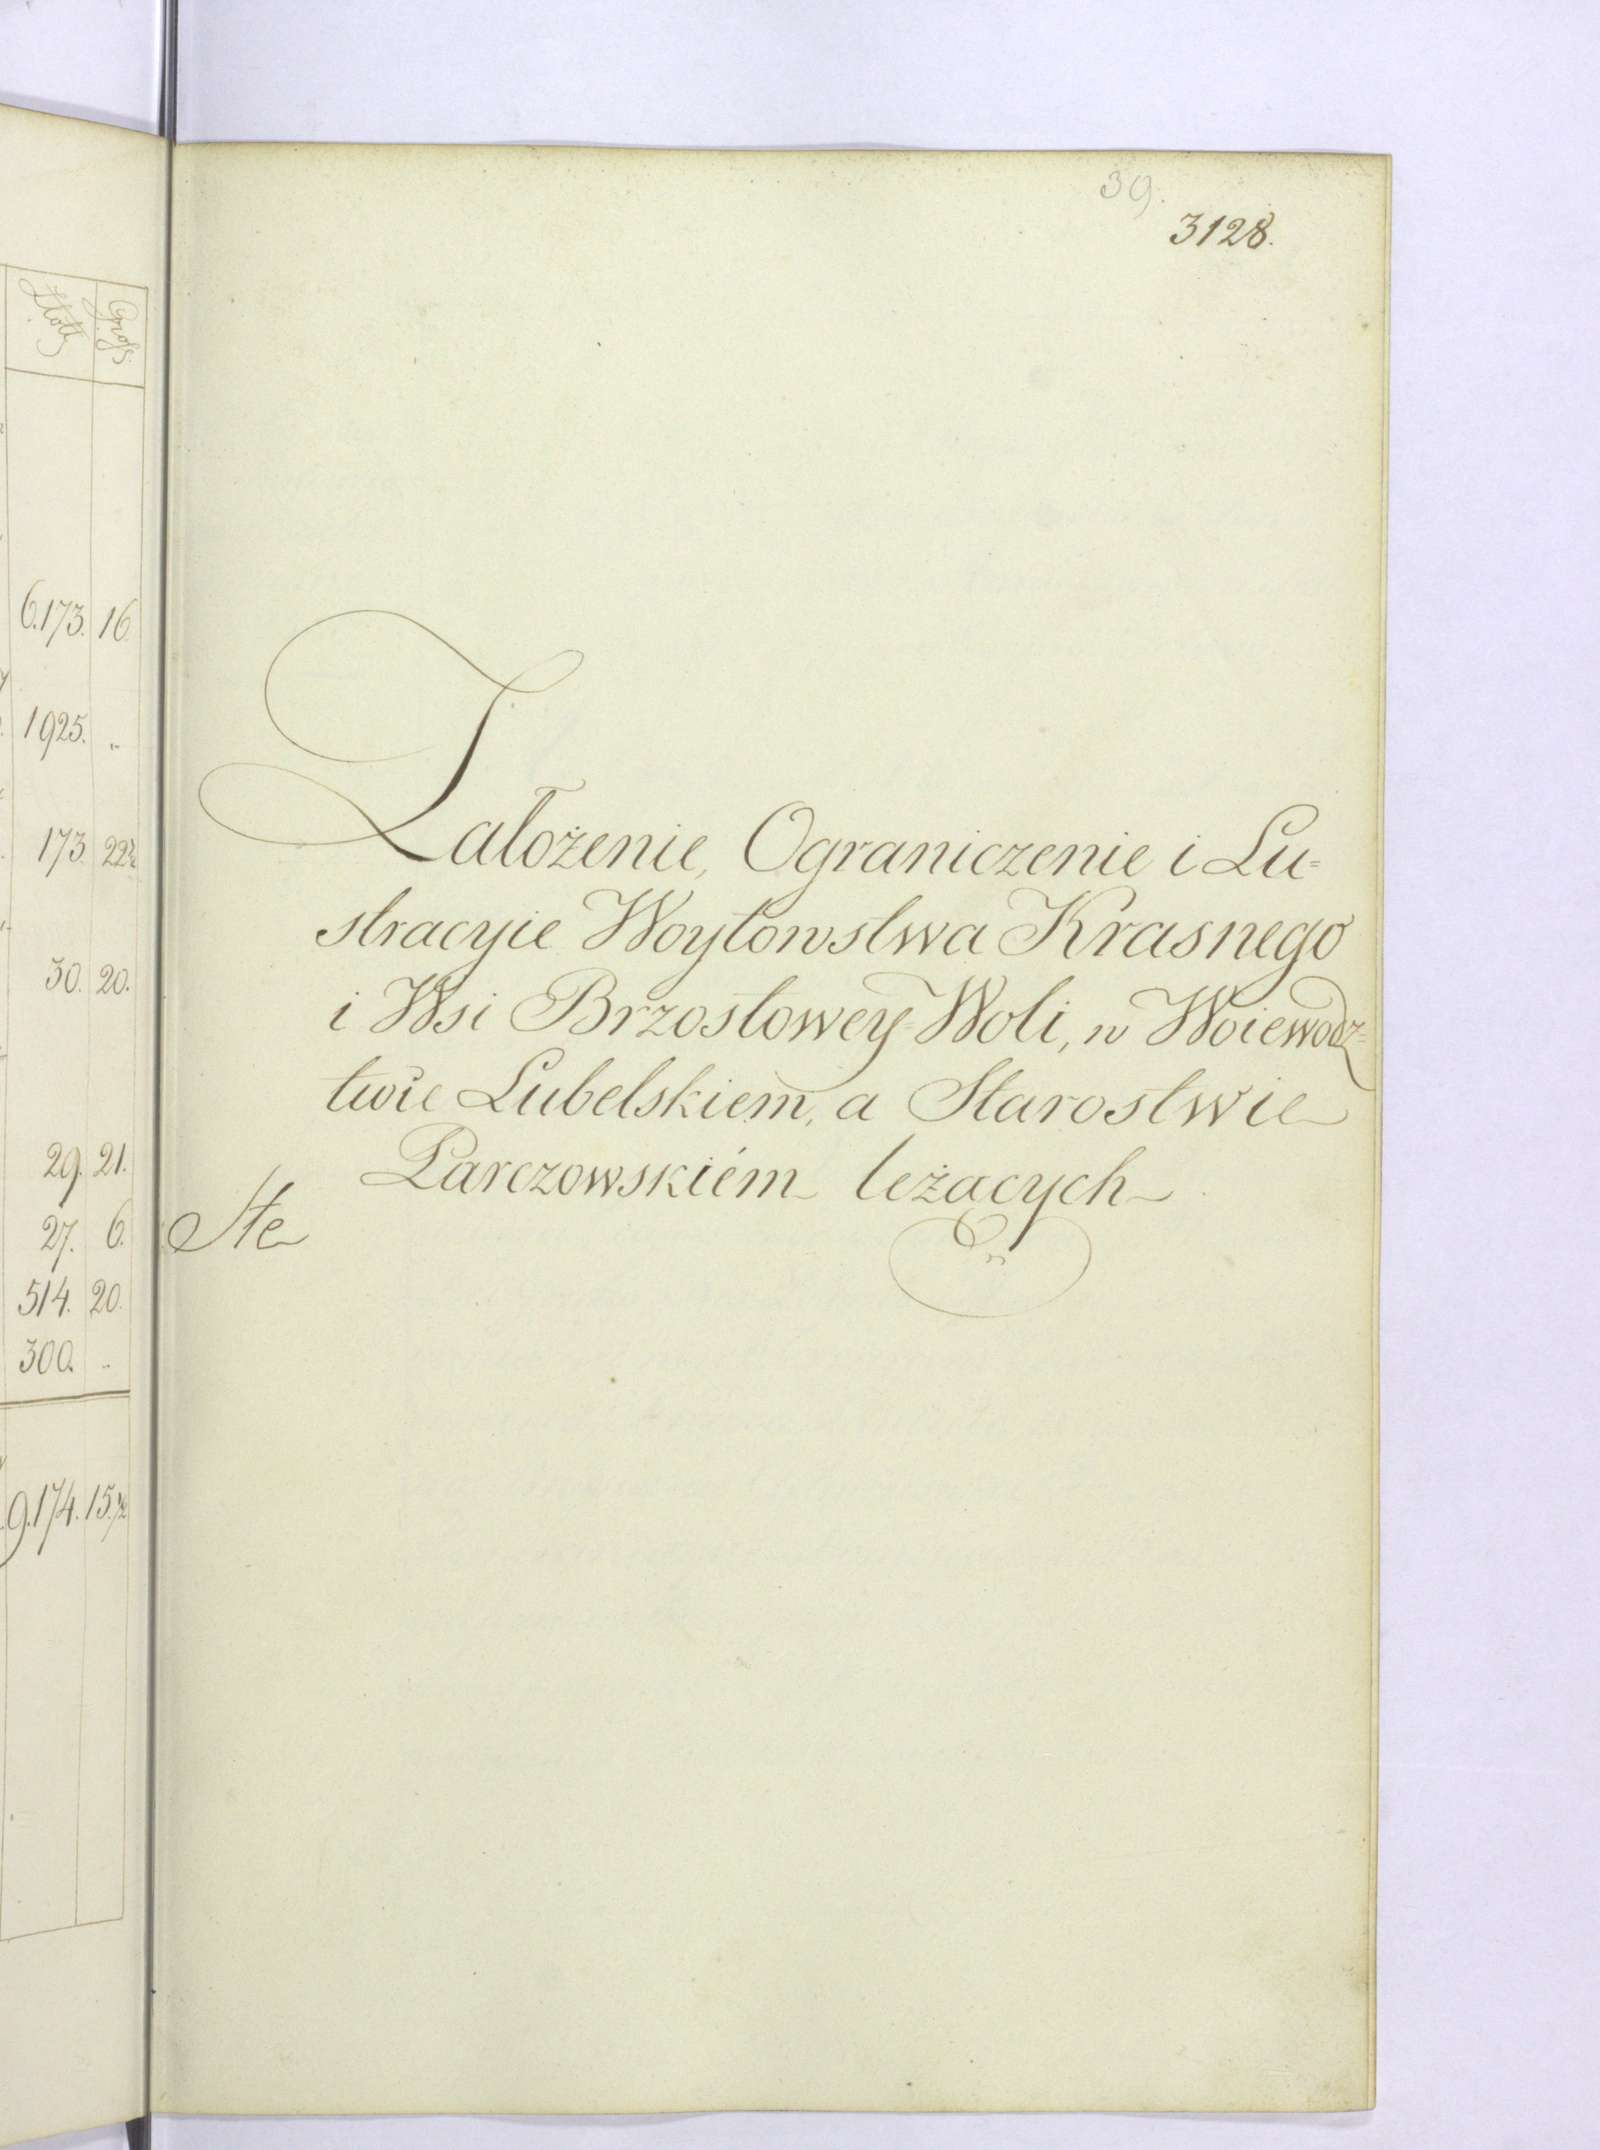 Złoty Grosz
6.173. 16.
1925. „
173. 22½
30. 20.
29. 21.
27. 6.
514. 20.
300. „
9.174. 15.½
39.
3128.
Założenie, Ograniczenie i Lu=
stracyie Woytowstwa Krasnego
i Wsi Brzostowey=Woli, w Woiewodz=
twie Lubelskiem, a Starostwie
Parczowskiém leżacych